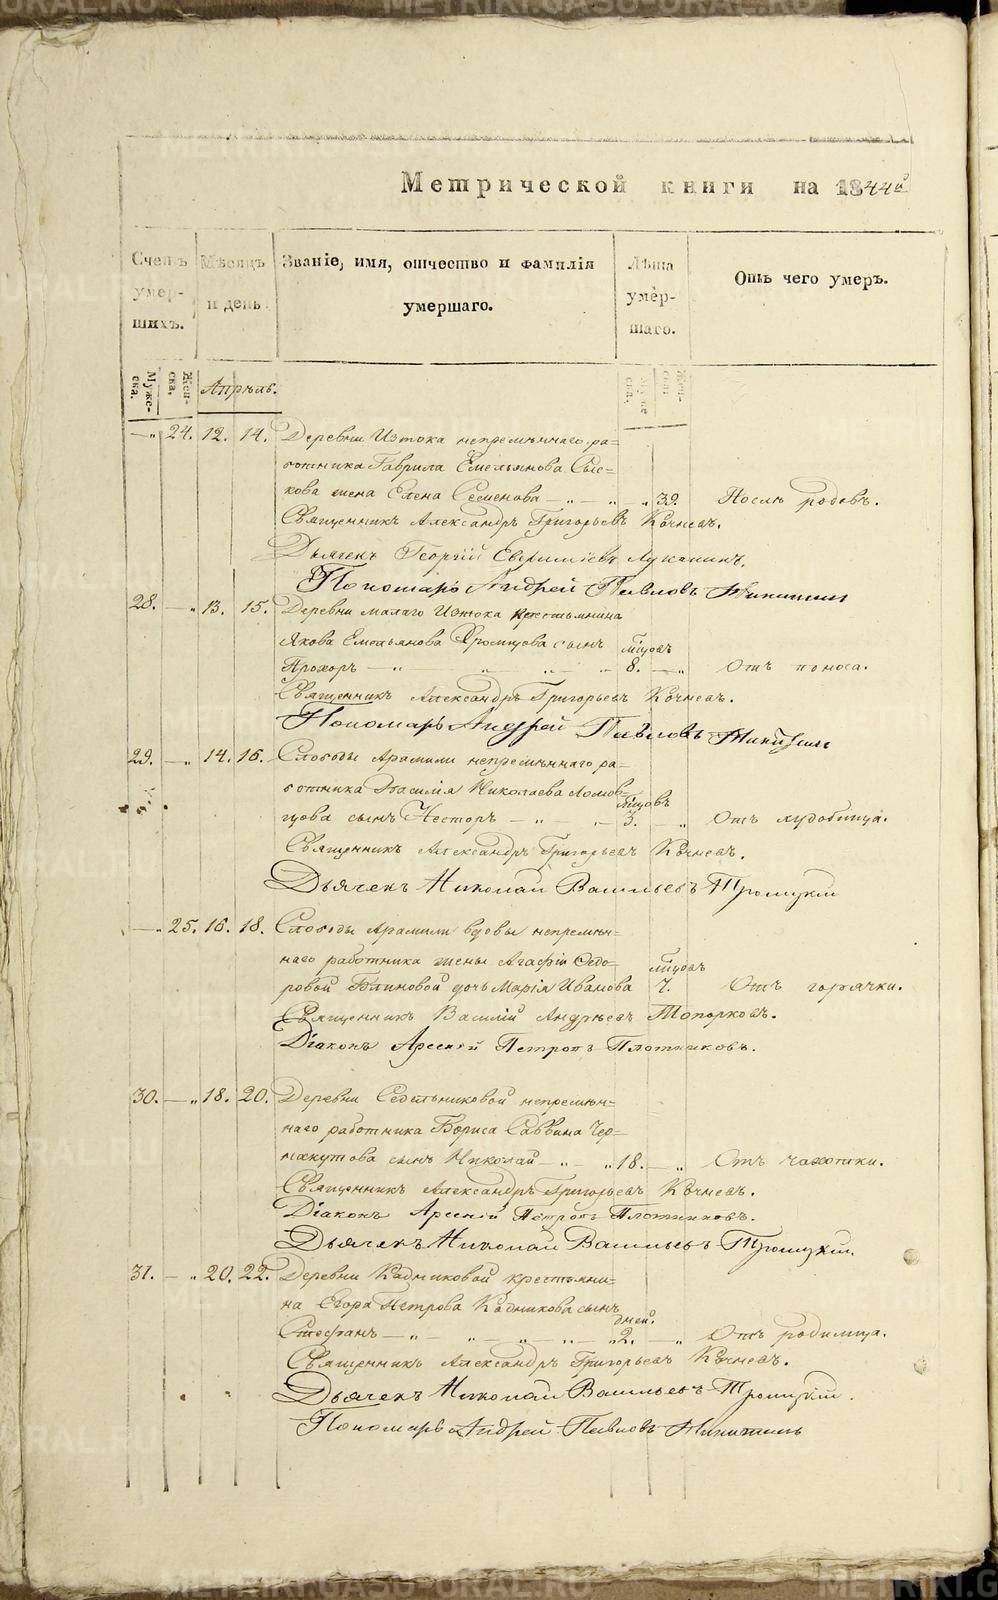 Метрической книги на 1844й
Счетъ умер- шихъ.
Мѣсяцъ и день
Званіе, имя, отчество и фамилія умершаго.
Лѣта умер- шаго.
Отъ чего умеръ.
Муже- ска. Жен- ска. Апрѣль. Муже ска. Жен- ска
— " 24. 12. 14. Деревни Истока непремѣннаго ра=
ботника Гаврила Емельянова Сысе=
кова жена Елена Семенова — " — " — " 39. Послѣ родовъ.
Священникъ Александръ Григорьевъ Кочневъ.
Дьячекъ Георгій Евфиміевъ Луканинъ.
Пономарь Андрей Павловъ Никитинъ
28. — " 13. 15. Деревни малаго Истока крестьянина
Якова Емельянова Храмцова сынъ мѣсцовъ
Прохоръ — " — " — " — " 8. — " Отъ поноса.
Священникъ Александръ Григорьевъ Кочневъ.
Пономарь Андрей Павловъ Никитинъ
29. — " 14. 16. Слободы Арамили непремѣннаго ра=
ботника Василія Николаева Ломов=
мѣсцовъ
цова сынъ Несторъ — " — " — 3. — " Отъ худобища.
Священникъ Александръ Григорьевъ Кочневъ.
Дьячекъ Николай Васильевъ Троицкій
— " 25. 16. 18. Слободы Арамили вдовы непремѣн=
наго работника жены Агафіи Ѳедо=
мѣсцовъ
ровой Блиновой дочь Марія Иванова 7. Отъ горячки.
Священникъ Василій Андреевъ Топорковъ.
Діаконъ Арсеній Петровъ Плотниковъ.
30. — " 18. 20. Деревни Седельниковой непремѣн=
наго работника Бориса Саввина Чер=
макутова сынъ Николай — " — " 18. — " Отъ чахотки.
Священникъ Александръ Григорьевъ Кочневъ.
Діаконъ Арсеній Петровъ Плотниковъ.
Дьячекъ Николай Васильевъ Троицкій.
31. — " 20. 22. Деревни Кадниковой крестьяни=
на Егора Петрова Кадникова сынъ
дней.
Стефанъ — " — " — " — " — " 2. — " Отъ родимца.
Священникъ Александръ Григорьевъ Кочневъ.
Дьячекъ Николай Васильевъ Троицкій.
Пономарь Андрей Павловъ Никитинъ